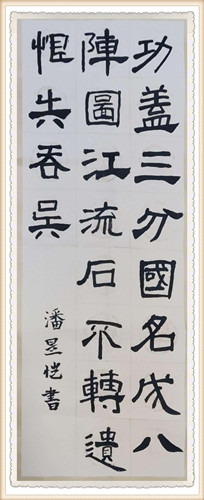 功盖三分國名成八
陣圖江流石不轉遺
恨失吞吴
潘昱愷書